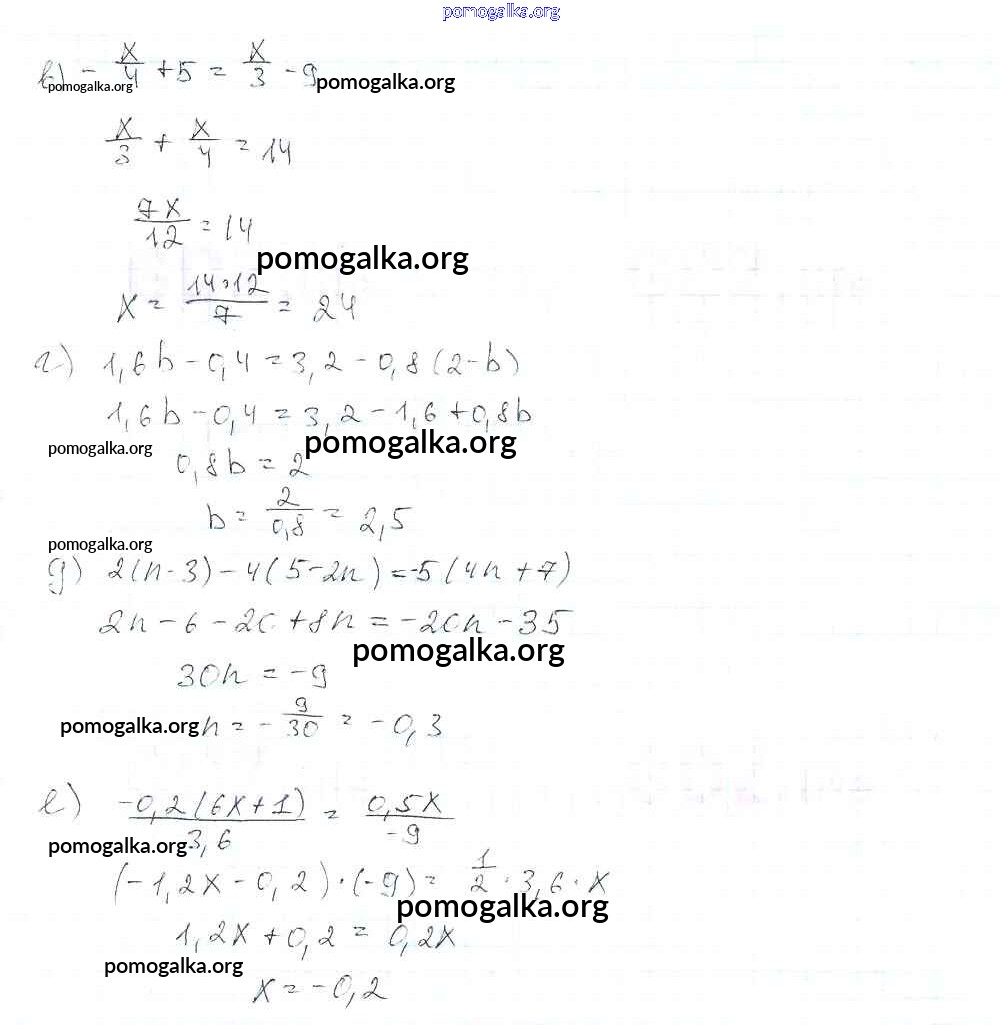 pomogalka.org
в) - x/4 + 5 = x/3 - 9 pomogalka.org
pomogalka.org
x/3 + x/4 = 14
7x/12 = 14
pomogalka.org
x = 14·12/7 = 24
г) 1,6b - 0,4 = 3,2 - 0,8(2-b)
1,6b - 0,4 = 3,2 - 1,6 + 0,8b
pomogalka.org pomogalka.org
0,8b = 2
b = 2/0,8 = 2,5
pomogalka.org
д) 2(n-3) - 4(5-2n) = -5(4n+7)
2n - 6 - 20 + 8n = -20n - 35
pomogalka.org
30n = -9
pomogalka.org n = - 9/30 = -0,3
е) -0,2(6x+1)/3,6 = 0,5x/-9
pomogalka.org
(-1,2x - 0,2)·(-9) = 1/2 · 3,6 · x
pomogalka.org
1,2x + 0,2 = 0,2x
pomogalka.org
x = -0,2